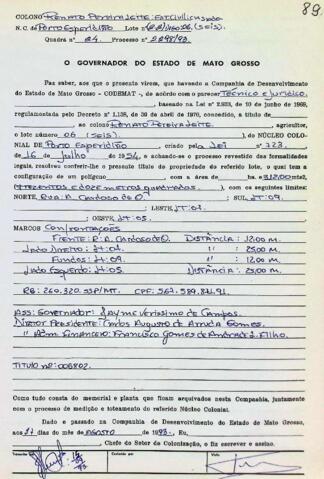 89.
COLONO Renato Pereira Leite
N. C. de Porto Esperidião Lote nº 06 (seis)
Quadra nº 24. Processo nº 2898/93.
O GOVERNADOR DO ESTADO DE MATO GROSSO
Faz saber, aos que o presente virem, que havendo a Companhia de Desenvolvimento
do Estado de Mato Grosso - CODEMAT -, de acordo com o parecer Técnico e Jurídico.
, baseado na Lei nº 2.933, de 10 de junho de 1969,
regulamentada pelo Decreto nº 1.138, de 30 de abril de 1970, concedido, a título de
ao colono Renato Pereira Leite, agricultor,
o lote número 06 (seis). do NÚCLEO COLO-
NIAL DE Porto Esperidião, criado pela Lei nº 723.
de 16 de julho de 1954, e achando-se o processo revestido das formalidades
legais, resolveu conferir-lhe o presente título de propriedade do referido lote, o qual tem a
configuração de um polígono, com a área de 312,00 m2,
trezentos e doze metros quadrados, com os seguintes limites:
NORTE, Rua A. Cardoso de O. ; SUL, Lt: 09.
; LESTE, Lt: 07.
; OESTE, Lt: 05.
MARCOS Confrontações
Frente: R: A. Cardoso de O. Distância: 12,00 m.
Lado Direito: Lt: 07. " 25,00 m.
Fundos: Lt: 09. " 12,00 m.
Lado Esquerdo: Lt: 05. Distância: 25,00 m.
RG: 260.320 SSP/MT. CPF:
Ass: Governador: Jayme Veríssimo de Campos.
Diretor Presidente: Carlos Augusto de Arruda Gomes.
" Adm Financeiro: Francisco Gomes de Andrade L. Filho.
Título nº: 006802.
Como tudo consta do memorial e planta que ficam arquivados nesta Companhia, juntamente
com o processo de medição e loteamento do referido Núcleo Colonial.
Dado e passado na Companhia de Desenvolvimento do Estado de Mato Grosso,
aos 17 dias do mês de Agosto de 1993. Eu,
, Chefe do Setor de Colonização, o fiz escrever e assino.
Conferido por
Visto